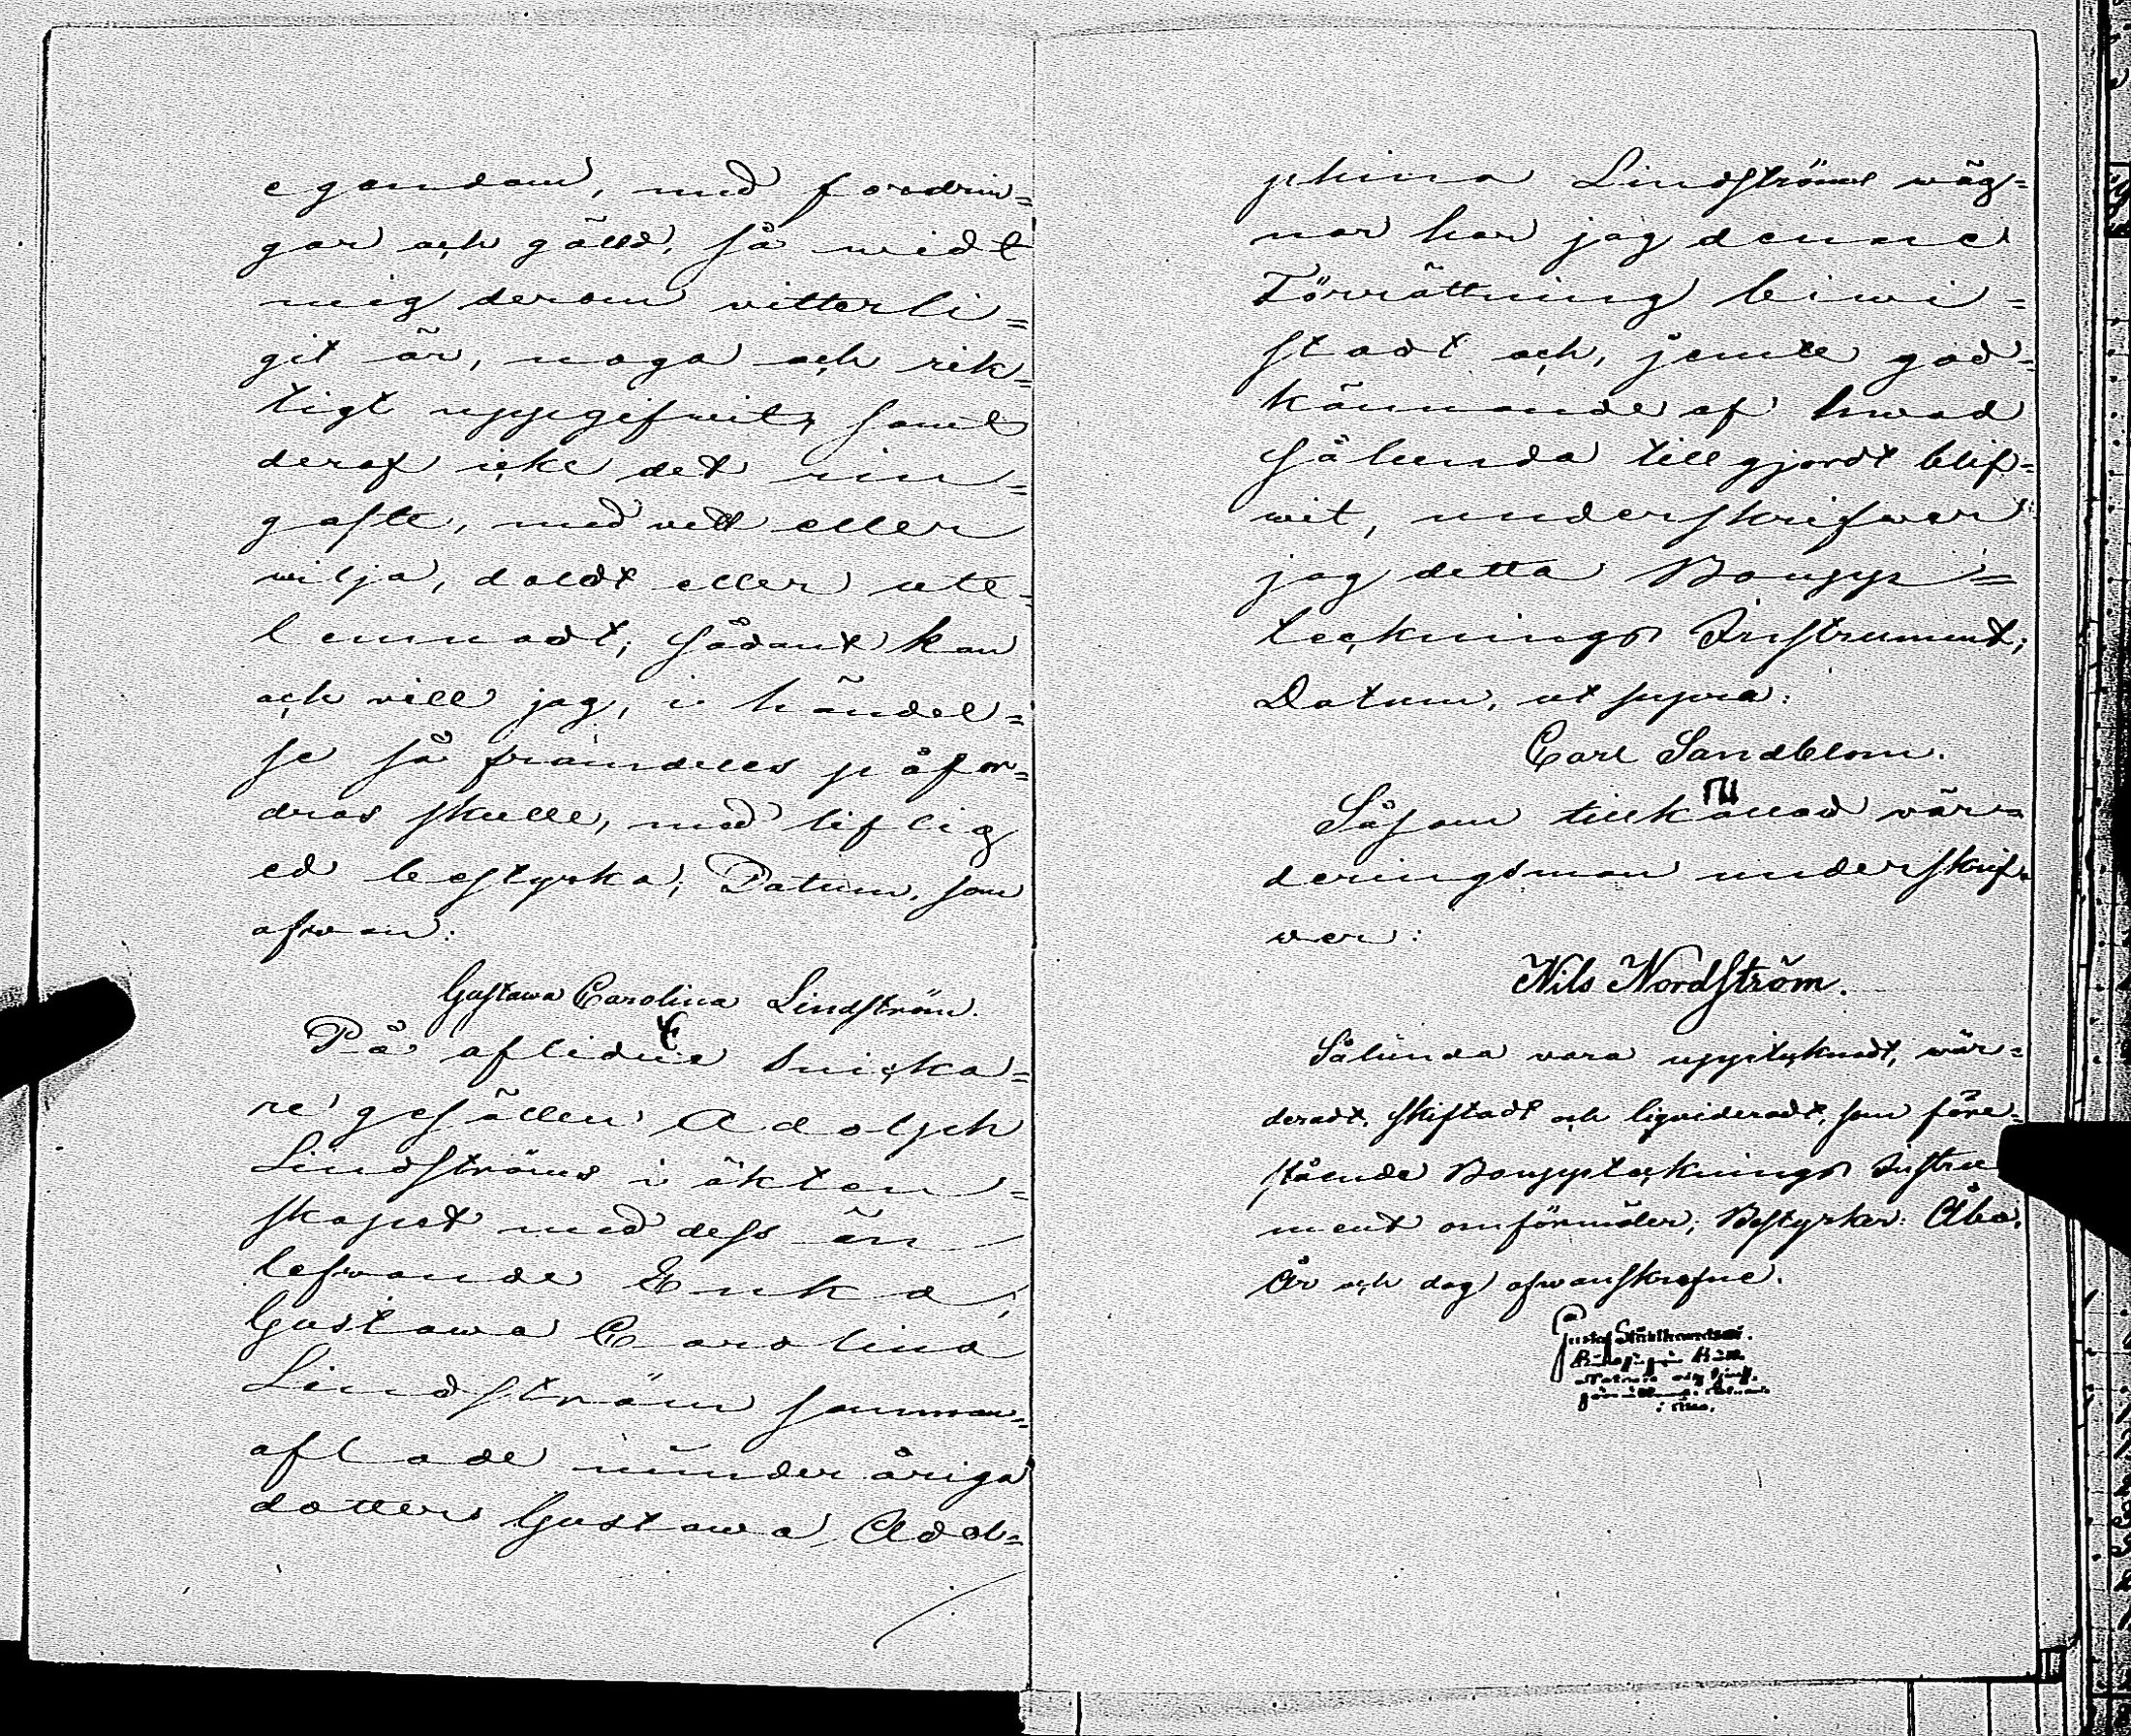 egendom, med fordrin=
gar och gäld, så widt
mig derom vitterli=
git är, noga och rik=
tigt uppgifwit, samt
deraf icke det rin=
gaste, med vett eller
wilja, doldt eller ute=
lemnadt; sådant kan
och vill jag, i händel=
se så framdeles påfor=
dras skulle, med liflig
ed bestyrka; Datum, som
ofwan:
Gustawa Carolina Lindström.
På aflidne Snicka=
re gesällen Adolph
Lindströms i äkten=
skapet med dess än
lefwande Enka,
Gustawa Carolina
Lindström samman=
aflade minderåriga
dotters Gustawa Adol=
phina Lindströms wäg=
nar har jag denne
Förrättning biwi=
stadt och, jemte god=
kännande af hwad
sålunda tillgjordt blif=
wit, underskrifwer
jag detta Boupp=
tecknings Instrument;
Datum, ut supra:
Carl Sandblom.
Såsom tillkallad vär=
deringsman underskrif=
wer:
Nils Nordström.
Sålunda vara upptecknadt, wär=
deradt, skiftadt och liqvideradt, som före=
stående Bouppteknings Instru
ment omförmäler; Bestyrker: Åbo,
År och dag ofwanskrefne.
Gustaf